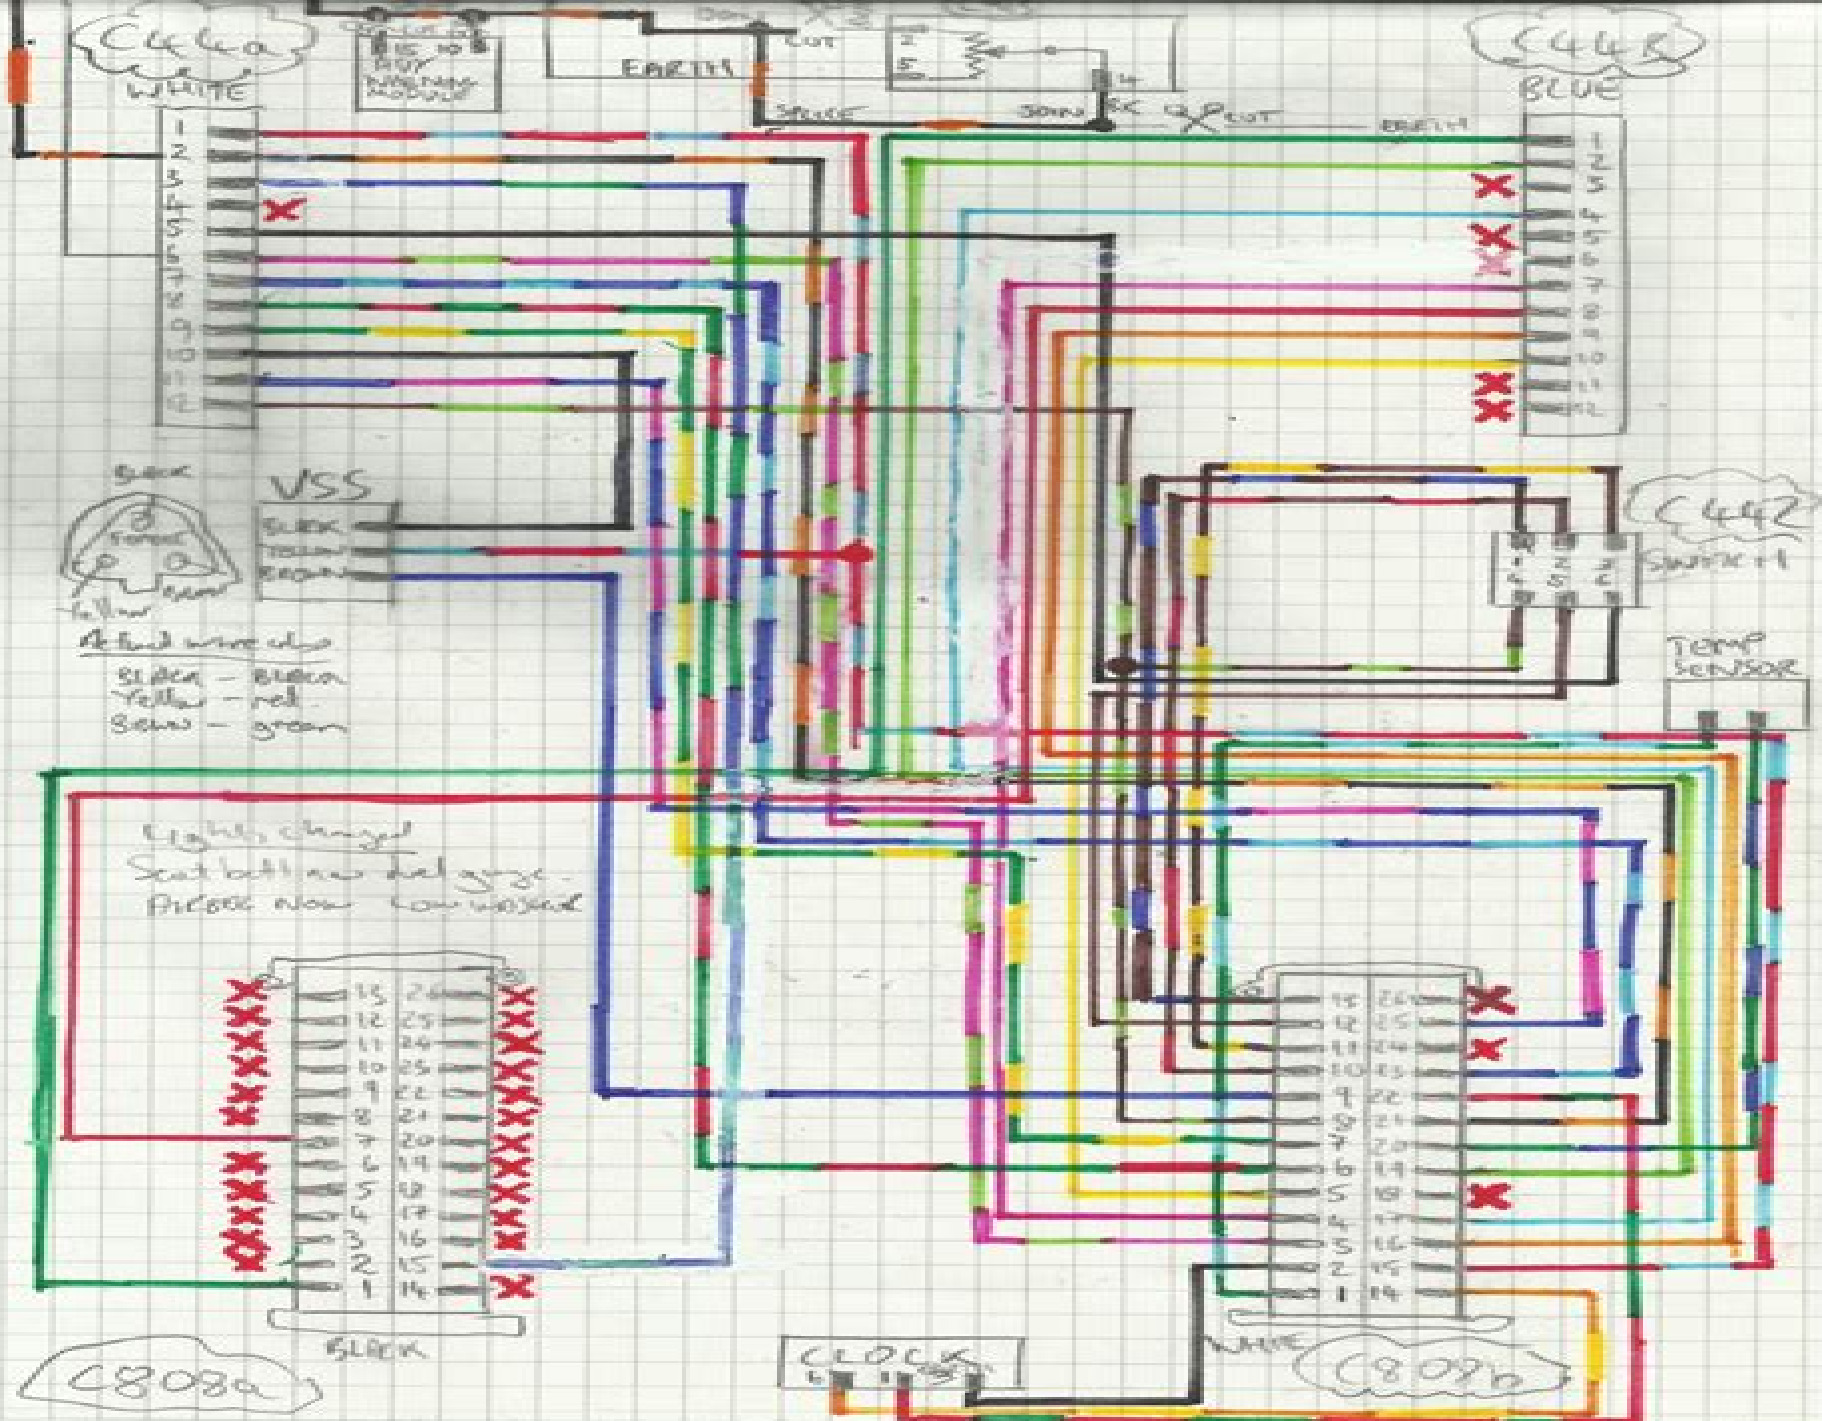 C44a
WHITE
WARNING
MODULE
EARTH
CUT
2
5
14
SPLICE
JOIN
CUT
EARTH
C44B
BLUE
1
2
3
4
5
6
7
8
9
10
11
12
1
2
3
4
5
6
7
8
9
10
11
12
BLACK
VSS
BLACK
YELLOW
BROWN
Yellow
Brown
Actual wire colors
BLACK - BLACK
Yellow - red
Brown - green
C442
SWITCH
TEMP
SENSOR
Lights changed
Seat belt now fuel gauge.
AIRBAG Now Low WASHER
13 26
12 25
11 24
10 23
9 22
8 21
7 20
6 19
5 18
4 17
3 16
2 15
1 14
BLACK
C808a
13 26
12 25
11 24
10 23
9 22
8 21
7 20
6 19
5 18
4 17
3 16
2 15
1 14
WHITE
C808b
CLOCK